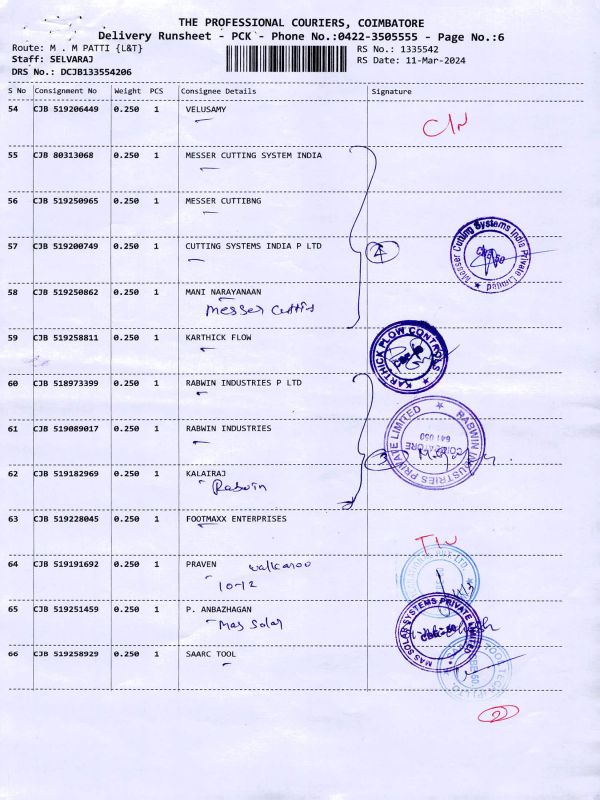 THE PROFESSIONAL COURIERS, COIMBATORE
Delivery Runsheet - PCK - Phone No.:0422-3505555 - Page No.:6
Route: M . M PATTI {L&T}
RS No.: 1335542
Staff: SELVARAJ
RS Date: 11-Mar-2024
DRS No.: DCJB133554206
S No Consignment No Weight PCS Consignee Details Signature
54 CJB 519206449 0.250 1 VELUSAMY
C/N
55 CJB 80313068 0.250 1 MESSER CUTTING SYSTEM INDIA
56 CJB 519250965 0.250 1 MESSER CUTTIBNG
57 CJB 519200749 0.250 1 CUTTING SYSTEMS INDIA P LTD
4
Messer Cutting Systems India Private Limited
58 CJB 519250862 0.250 1 MANI NARAYANAAN
Messer
59 CJB 519258811 0.250 1 KARTHICK FLOW
KARTHICK FLOW CONTROLS
60 CJB 518973399 0.250 1 RABWIN INDUSTRIES P LTD
61 CJB 519089017 0.250 1 RABWIN INDUSTRIES
RABWIN INDUSTRIES PRIVATE LIMITED
COIMBATORE
641 050
62 CJB 519182969 0.250 1 KALAIRAJ
Rabwin
63 CJB 519228045 0.250 1 FOOTMAXX ENTERPRISES
64 CJB 519191692 0.250 1 PRAVEN walkaroo
10-12
65 CJB 519251459 0.250 1 P. ANBAZHAGAN
Mas Solar
MAS SOLAR SYSTEMS PRIVATE LIMITED
66 CJB 519258929 0.250 1 SAARC TOOL
2